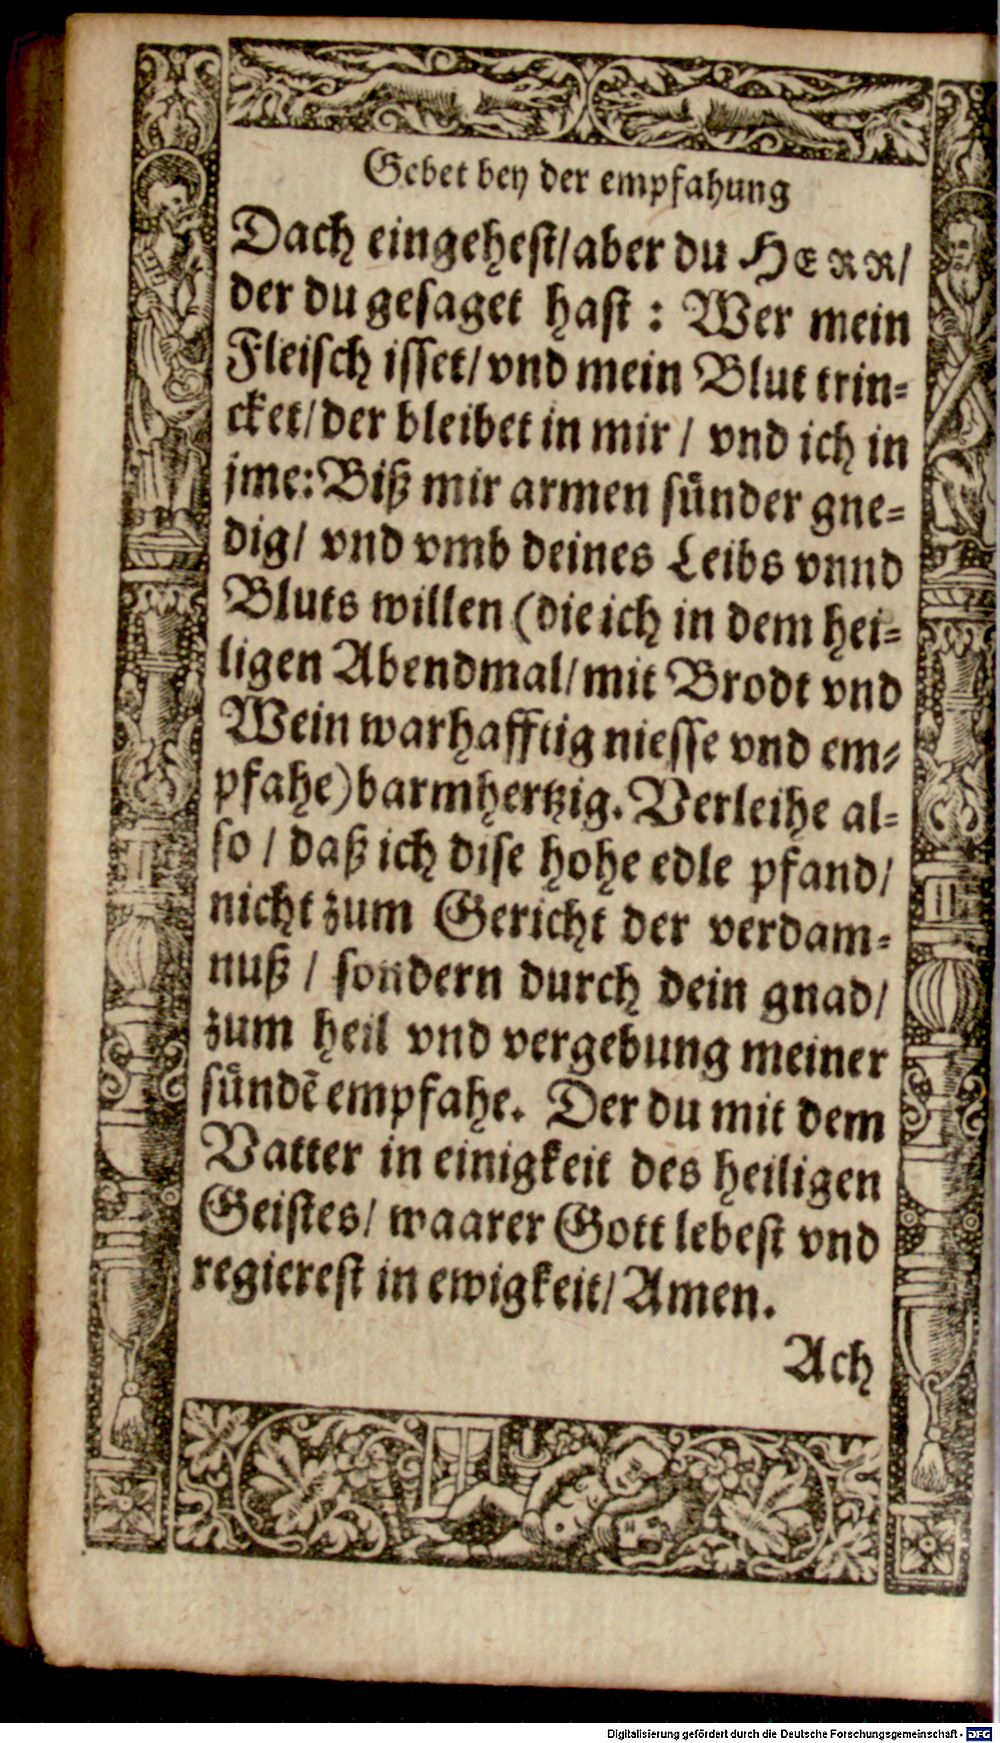 Gebet bey der empfahung
Dach eingehest/ aber du HERR/
der du gesaget hast : Wer mein
Fleisch isset/ vnd mein Blut trin-
cket/ der bleibet in mir / vnd ich in
jme: Biß mir armen sünder gne-
dig/ vnd vmb deines Leibs vnnd
Bluts willen (die ich in dem hei-
ligen Abendmal/ mit Brodt vnd
Wein warhafftig niesse vnd em-
pfahe) barmhertzig. Verleihe al-
so / daß ich dise hohe edle pfand/
nicht zum Gericht der verdam-
nuß / sondern durch dein gnad/
zum heil vnd vergebung meiner
sündē empfahe. Der du mit dem
Vatter in einigkeit des heiligen
Geistes/ waarer Gott lebest vnd
regierest in ewigkeit/ Amen.
Ach
Digitalisierung gefördert durch die Deutsche Forschungsgemeinschaft - DFG